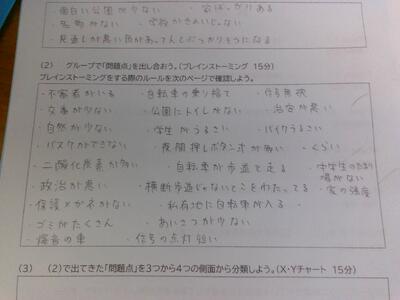 ・面白い公園が少ない ・空ばっかりある
・名物がない ・学校がきれいじゃない
・見通しが悪い角があってんしぶつかりそうになる
(2) グループで「問題点」を出し合おう。(ブレインストーミング 15分)
ブレインストーミングをする際のルールを次のページで確認しよう。
・不審者がいる ・自転車の乗り捨て ・信号無視
・交番が少ない ・公園にトイレがない ・治安が悪い
・自然が少ない ・学生がうるさい ・バイクうるさい
・バスケができない ・夜間押しボタン式が多い ・くらい
・二酸化炭素が多い ・自転車が歩道を走る ・中学生のたまり場がない
・政治が悪い ・横断歩道じゃないとこをわたってる ・家の強度
・保護メガネがない ・私有地に自転車が入る
・ゴミがたくさん ・あいさつが少ない
・爆音の車 ・信号の点灯短い
(3) (2)で出てきた「問題点」を3つから4つの側面から分類しよう。(X・Yチャート 15分)